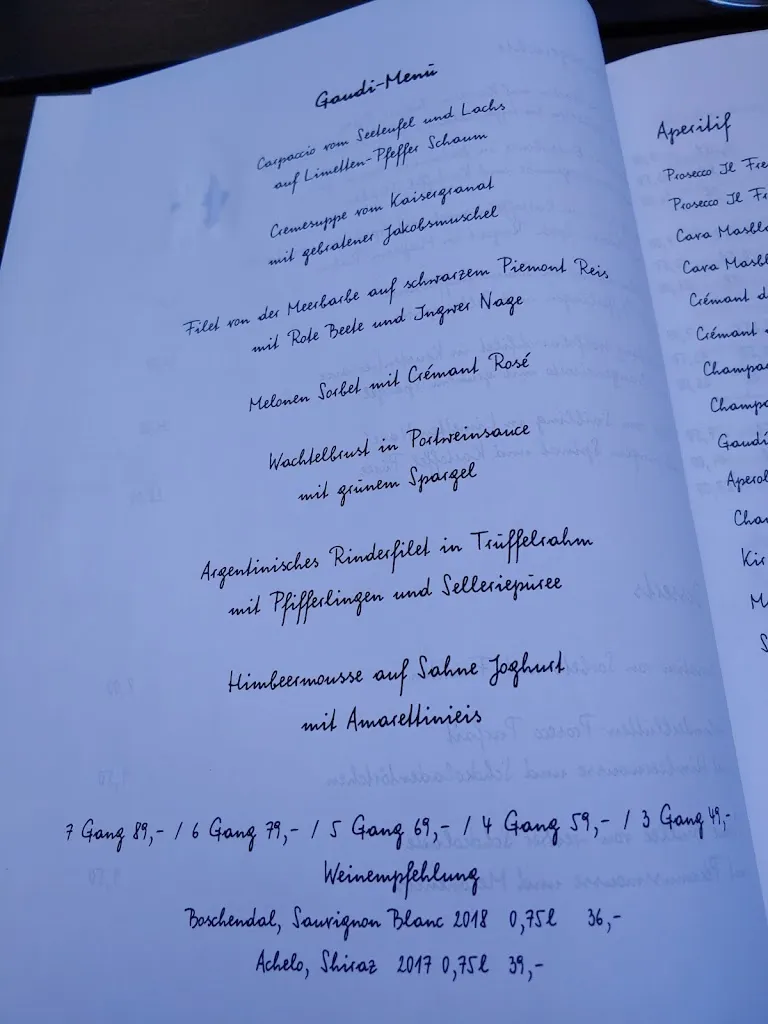 Gaudi-Menü
Carpaccio vom Seeteufel und Lachs
auf Limetten-Pfeffer Schaum
Cremesuppe vom Kaisergranat
mit gebratener Jakobsmuschel
Filet von der Meerbarbe auf schwarzem Piemont Reis
mit Rote Beete und Ingwer Nage
Melonen Sorbet mit Crémant Rosé
Wachtelbrust in Portweinsauce
mit grünem Spargel
Argentinisches Rinderfilet in Trüffelrahm
mit Pfifferlingen und Selleriepüree
Himbeermousse auf Sahne Joghurt
mit Amarettinieis
7 Gang 89,- / 6 Gang 79,- / 5 Gang 69,- / 4 Gang 59,- / 3 Gang 49,-
Weinempfehlung
Boschendal, Sauvignon Blanc 2018 0,75l 36,-
Achelo, Shiraz 2017 0,75l 39,-
Aperitif
Prosecco Il Fre
Prosecco Il Fr
Cava Masbl
Cava Masbl
Crémant d
Crémant
Champa
Champa
Gaudi
Aperol
Cha
Kir
M
S